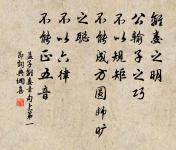 離婁之明
公輸子之巧
不以規矩
不能成方圓師曠
之聰
不以六律
不能正五音
孟子離婁章句上第一